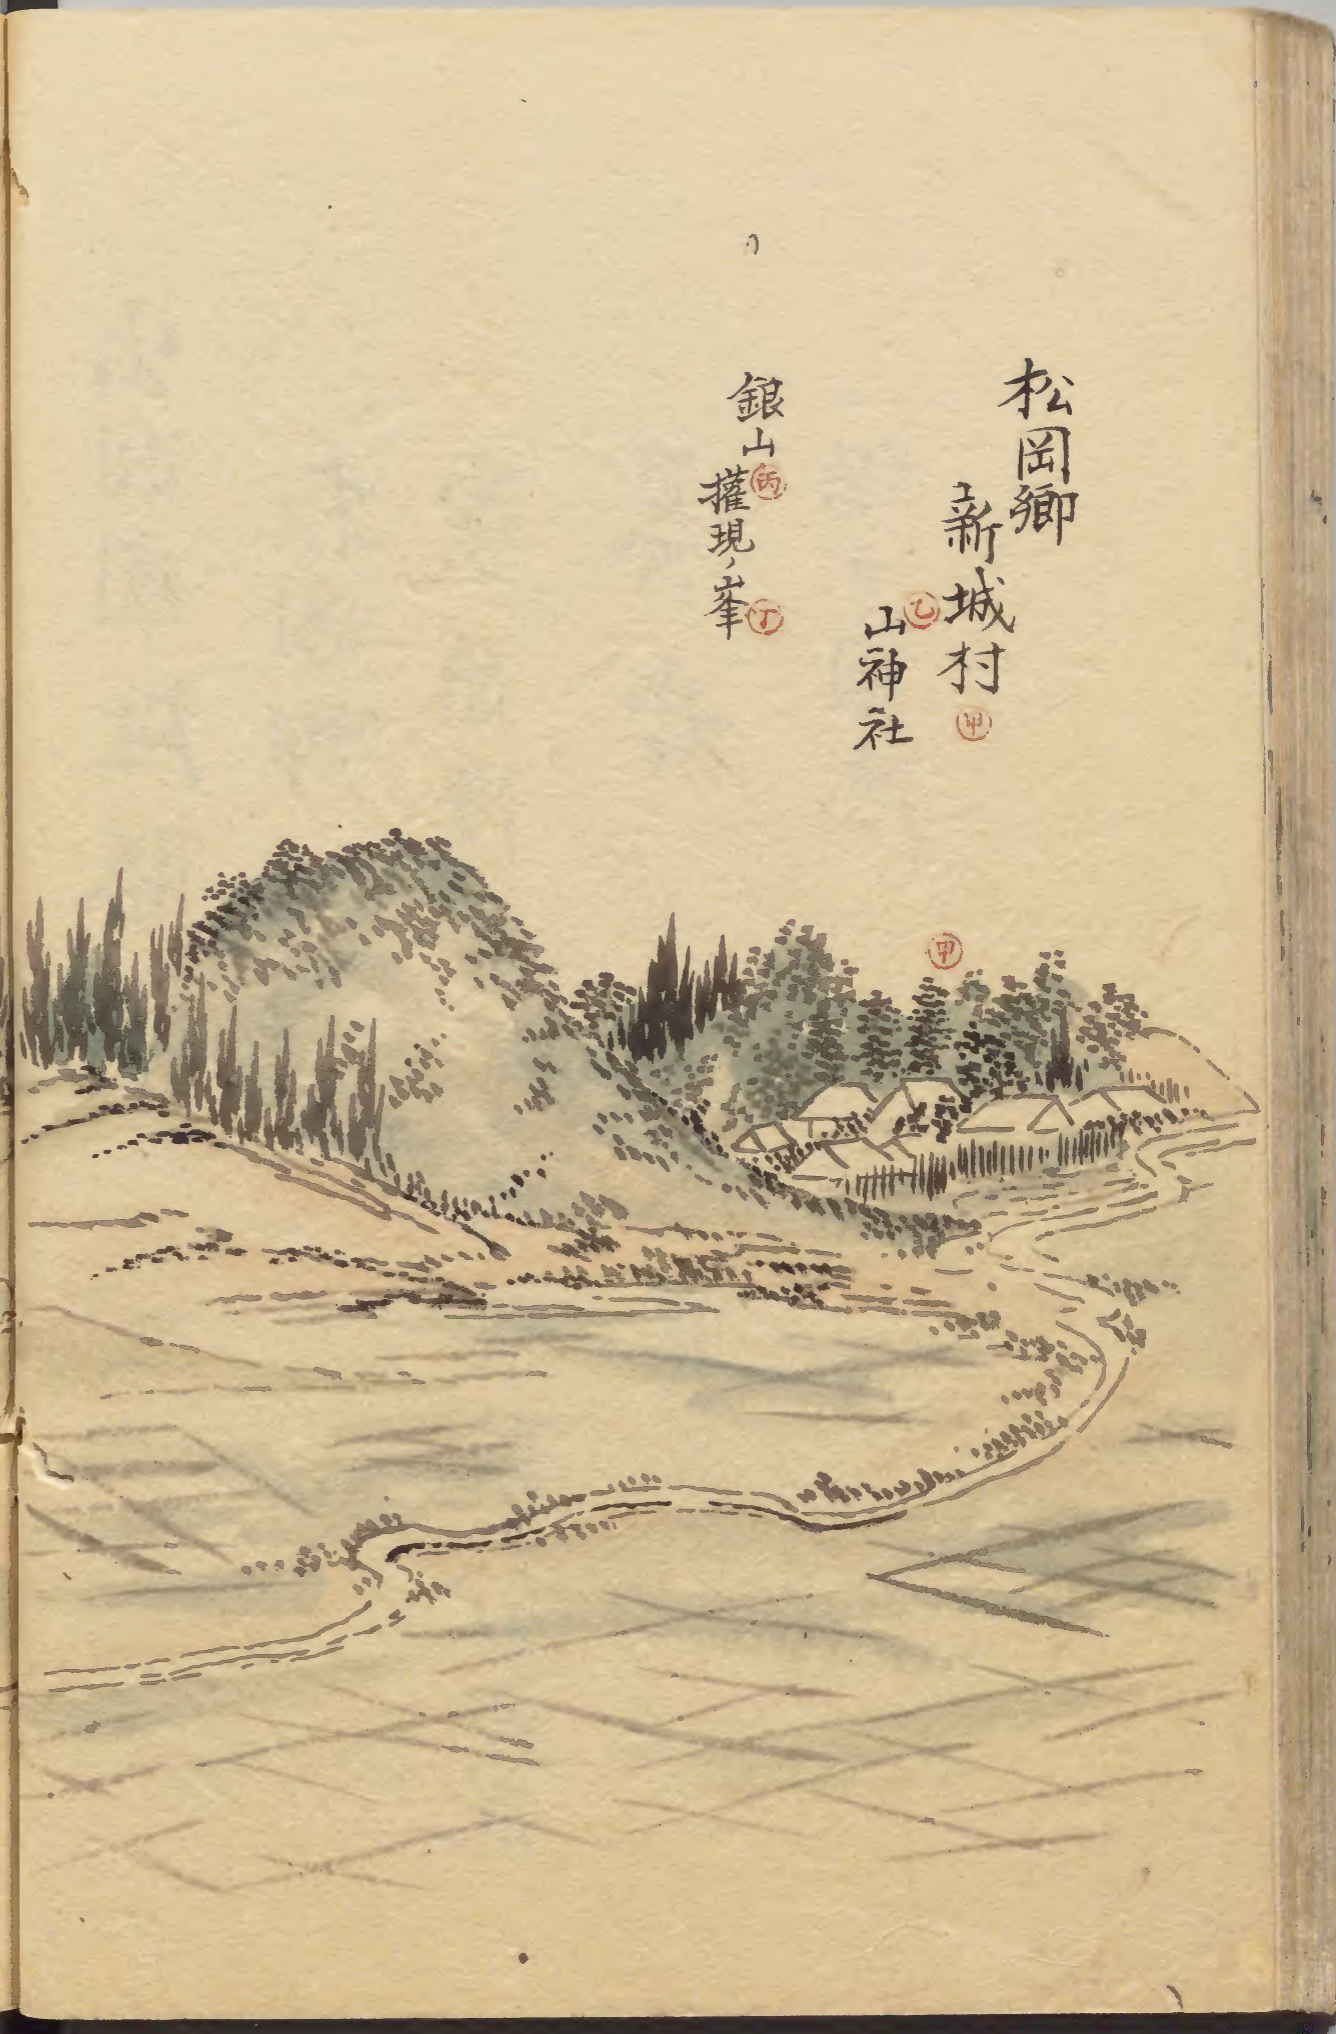 松岡郷
新城村 甲
乙 山神社
銀山 丙
權現ノ峯 丁
甲